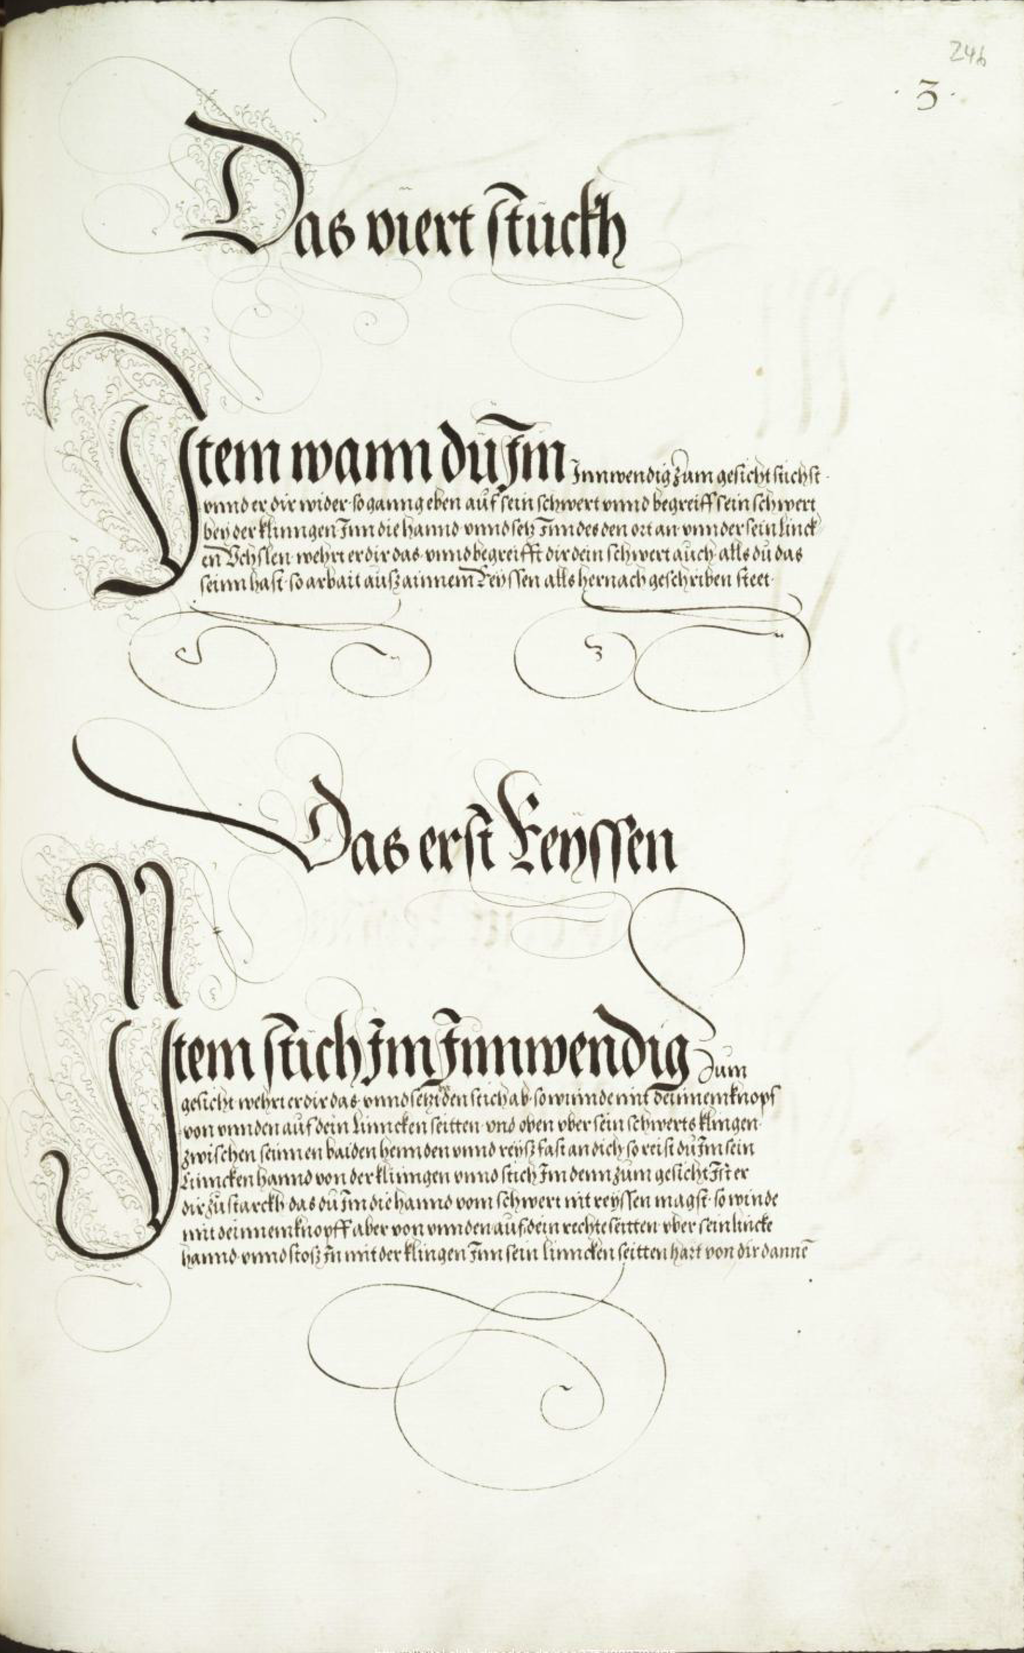 246
· 3 ·
Das viert stuckh
Item wann du Jm Jnnwendig zum gesicht stichst ·
vnnd er dir wider · so ganng eben auf sein schwert vnnd begreiff sein schwert
bey der klinngen Jnn die hannd · vnnd setz Jnndes den ort an · vnnder sein Linck
en Vchslen · wehrt er dir das · vnnd begreifft dir dein schwert auch · alls du das
seinn hast · so arbait ausz ainnem Reyssen alls hernach geschriben steet ·
Das erst Reyssen
Item stich Jm Jnnwendig zum
gesicht wehrt er dir das · vnnd setzt den stich ab · so winnde mit deinnem knopf
von vnnden auf dein Linncken seitten · vnd oben vber sein schwerts klingen ·
zwischen seinnen baiden hennden vnnd reysz fast an dich · so reist du Jm sein
Linncken hannd von der klinngen vnnd stich Jm denn zum gesicht Jst er
dir zu starckh das du Jm die hannd vom schwert nit reyssen magst · so winde
mit deinnem knopff aber von vnnden auf dein rechte seitten · vber sein lincke
hannd · vnnd stosz jn mit der klingen Jnn sein linncken seitten hart von dir danne̅